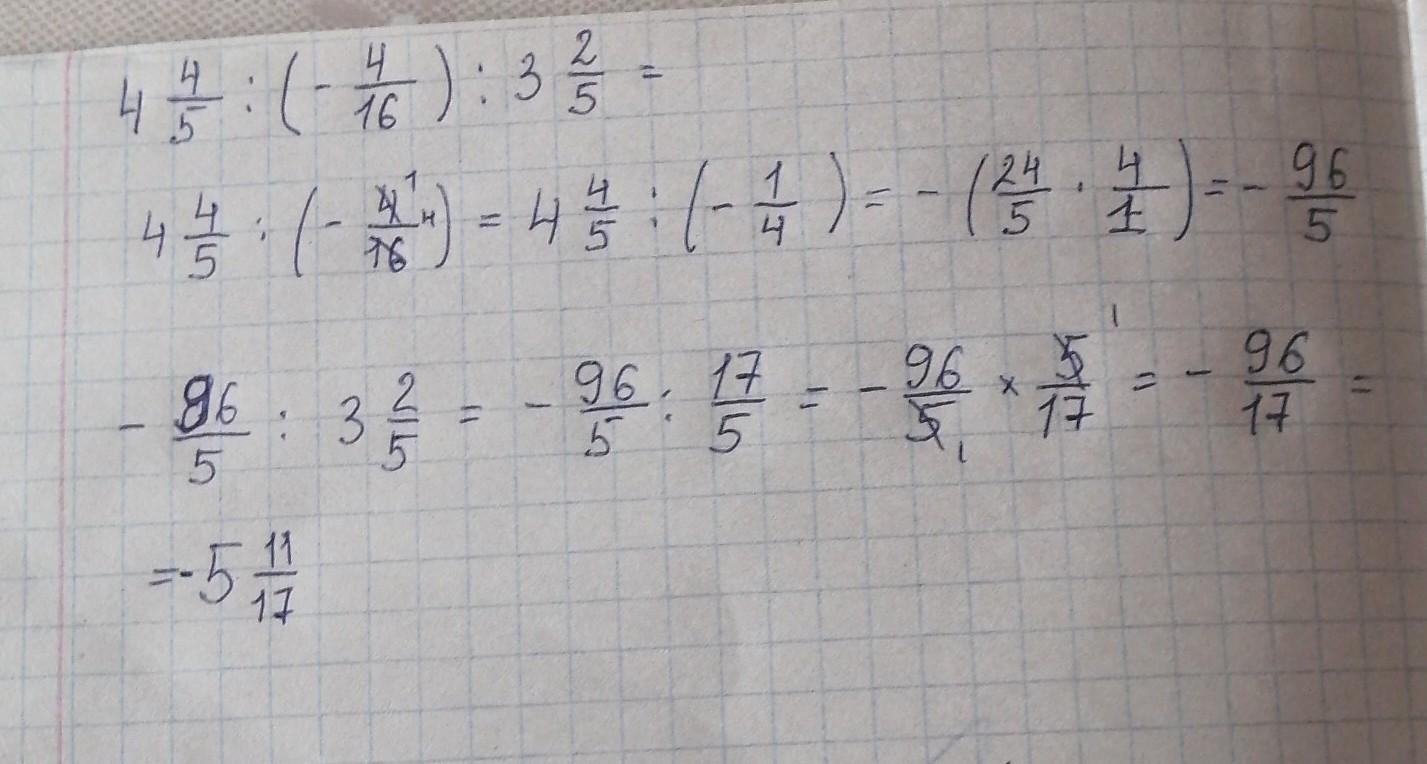 4 4/5 : (- 4/16) : 3 2/5 =
4 4/5 : (- 4 1/16 4) = 4 4/5 : (- 1/4) = - (24/5 · 4/1) = - 96/5
- 96/5 : 3 2/5 = - 96/5 : 17/5 = - 96/5 1 × 5 1/17 = - 96/17 =
= - 5 11/17